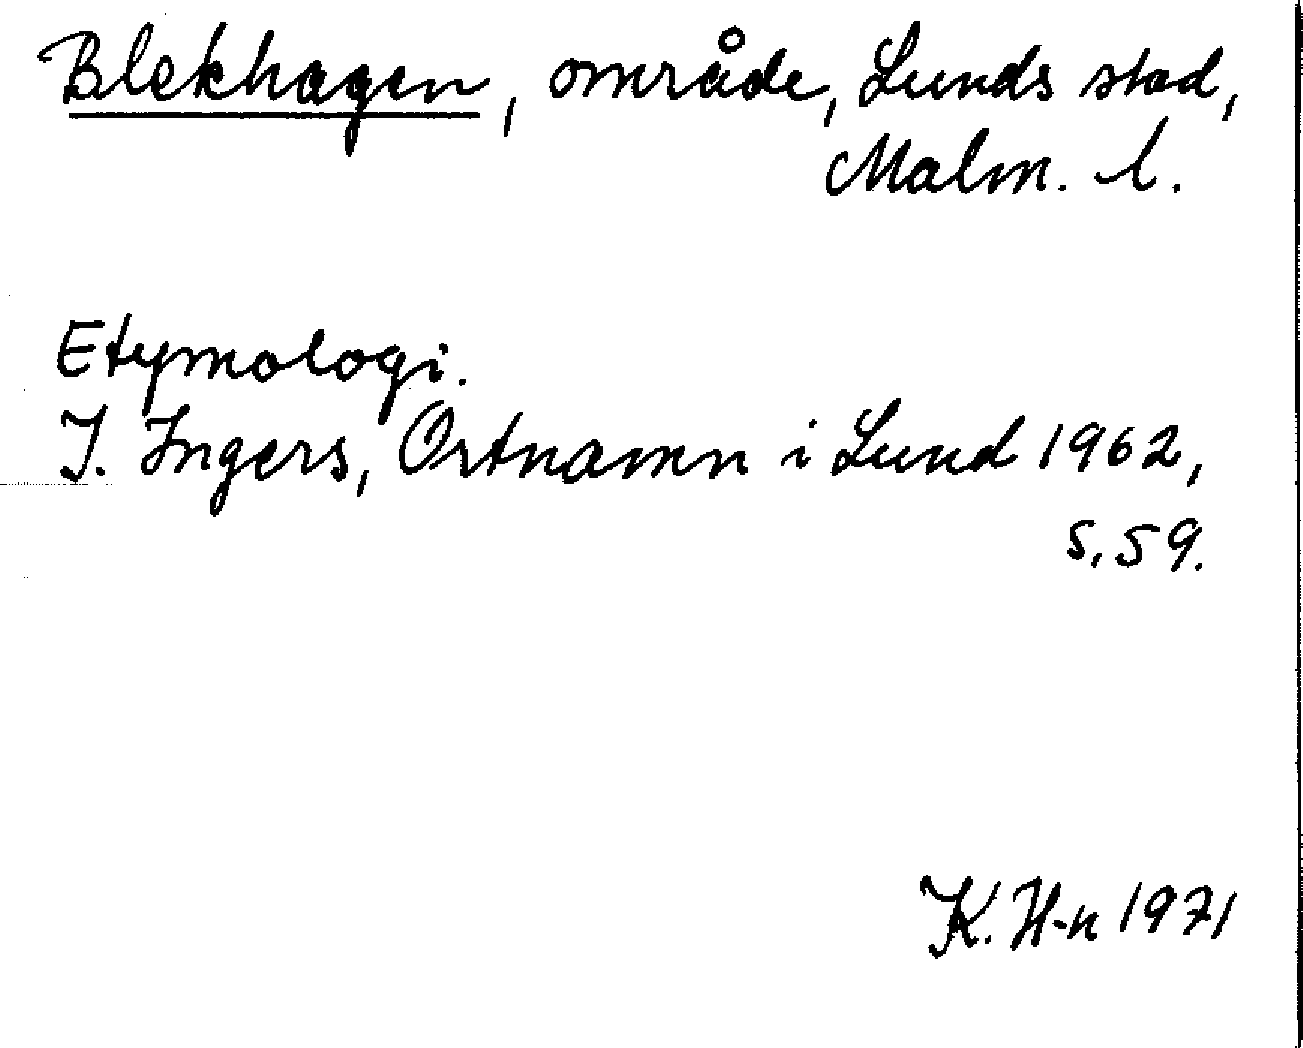 Blekhagen, område, Lunds stad,
Malm. l.
Etymologi.
I. Ingers, Ortnamn i Lund 1962,
s. 59.
K. H-n 1971